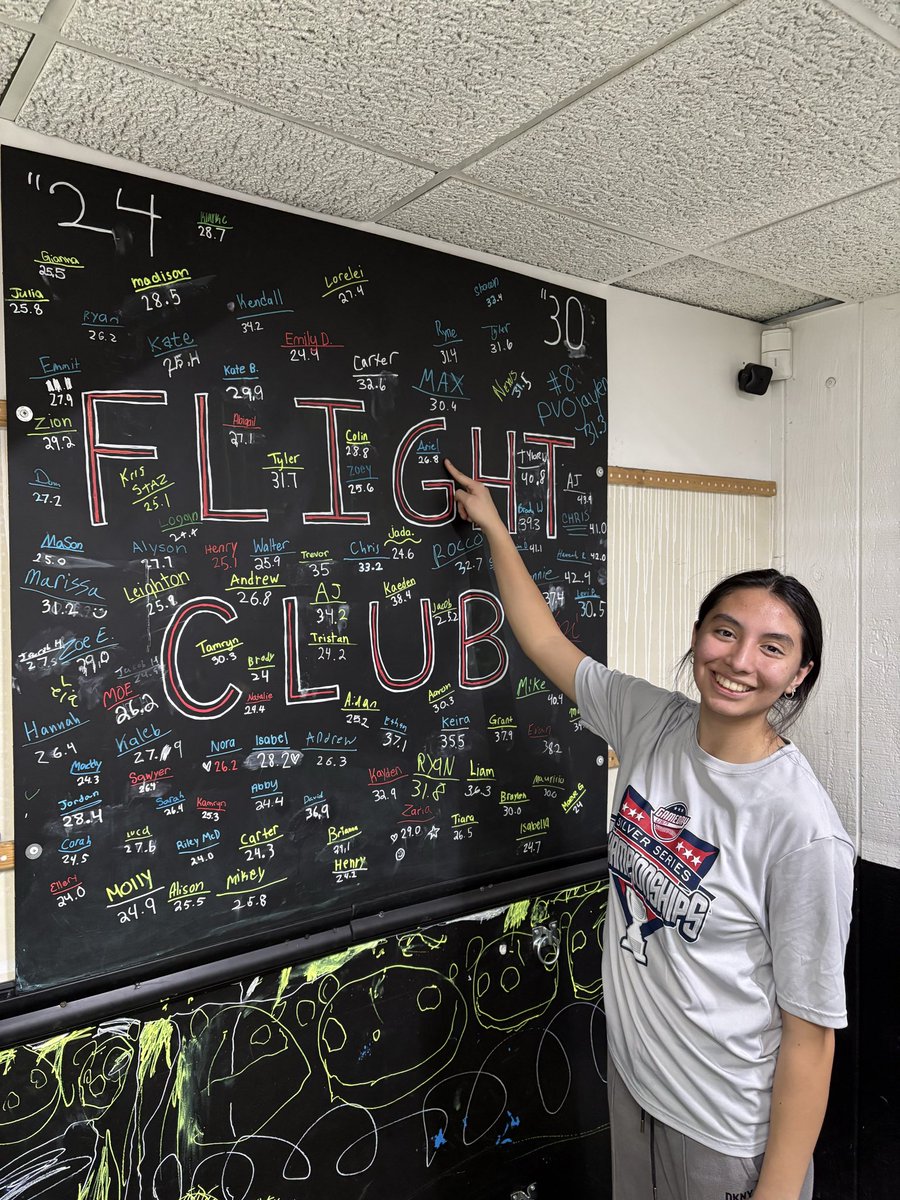 "24
Kinric
28.7
Gianna
25.5
Julia
25.8
madison
28.5
Lorelei
27.4
Shawn
32.4
"30
Ryan
26.2
Kendall
34.2
Kate
25.4
Emily D.
24.9
Ryne
31.4
Tyler
31.6
Emmit
27.9
Kate B.
29.9
Carter
32.6
MAX
30.4
News
31.5
#8
pvojayden
31.3
Zion
29.2
Abigail
27.1
FLIGHT
CLUB
Colin
28.8
Ariel
26.8
Tyler
31.7
Zoey
25.6
Tylor
40.8
AJ
43.9
Dom
27.2
Kris
STAZ
25.1
Logan
24.4
Brody W
39.3
CHRIS
41.0
MaSon
25.0
Alyson
27.7
Henry
25.1
Walter
25.9
Trevor
35
Chris
33.2
Jada
24.6
Rocco
32.7
41.1
Hannah R.
42.0
Marissa
30.2
Leighton
25.8
Andrew
26.8
AJ
34.2
Kaeden
38.4
42.4
Levi P.
30.5
Jacob
25.2
Zoe E.
29.0
Tamryn
30.3
Tristan
24.2
Brody
24
Natalie
29.4
MOE
26.2
Aidan
25.2
Aaron
30.3
Mike
40.2
Hannah
26.4
Kaleb
27.9
Nora
26.2
Isabel
28.2
Andrew
26.3
Ethan
37.1
Keira
35.5
Grant
37.9
Evan
38.2
Matty
24.3
Sawyer
26.9
Abby
24.4
Kayden
32.9
RYAN
31.8
Liam
34.3
Mauricio
30.0
Jordan
28.4
Sarah
26.4
Kamryn
25.3
David
36.9
Zaria
29.0
Braylon
30.6
Maddie G
24
Corah
24.5
Luca
27.6
Riley McD
24.0
Carter
24.3
Brianna
29.1
Tiara
26.5
Isabella
24.7
Ellery
24.0
Molly
24.9
Alison
25.5
Mikey
25.8
Henry
24.2
GAMEDAY
SILVER SERIES
CHAMPIONSHIPS
DKNY